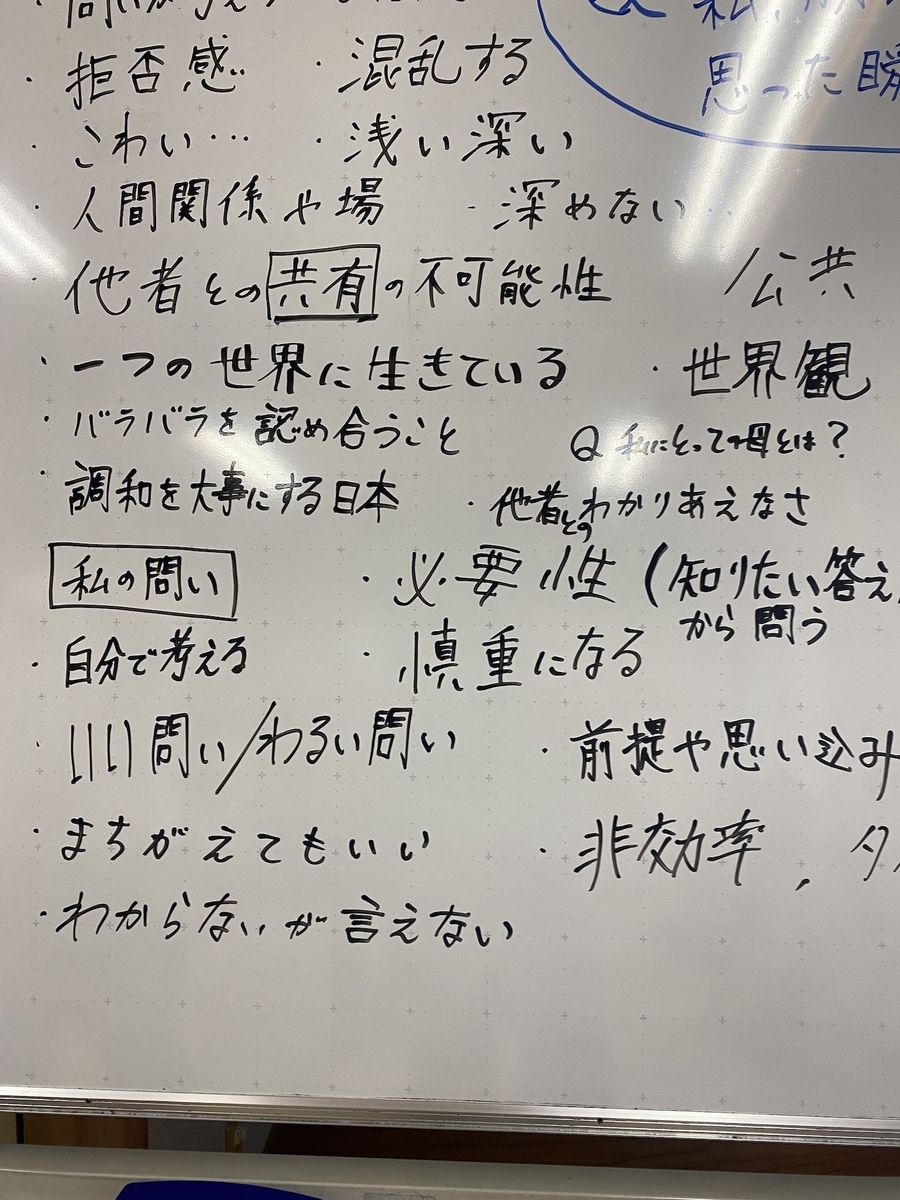 ・拒否感 ・混乱する
思った瞬
・こわい… ・浅い深い
・人間関係や場 ・深めない…
・他者との共有の不可能性 /公共
・一つの世界に生きている ・世界観
・バラバラを認め合うこと Q 私にとっての母とは?
・調和を大事にする日本 ・他者とのわかりあえなさ
私の問い ・必要性(知りたい答え
から問う
・自分で考える ・慎重になる
・いい問い/わるい問い ・前提や思い込み
・まちがえてもいい ・非効率、タ
・わからないが言えない